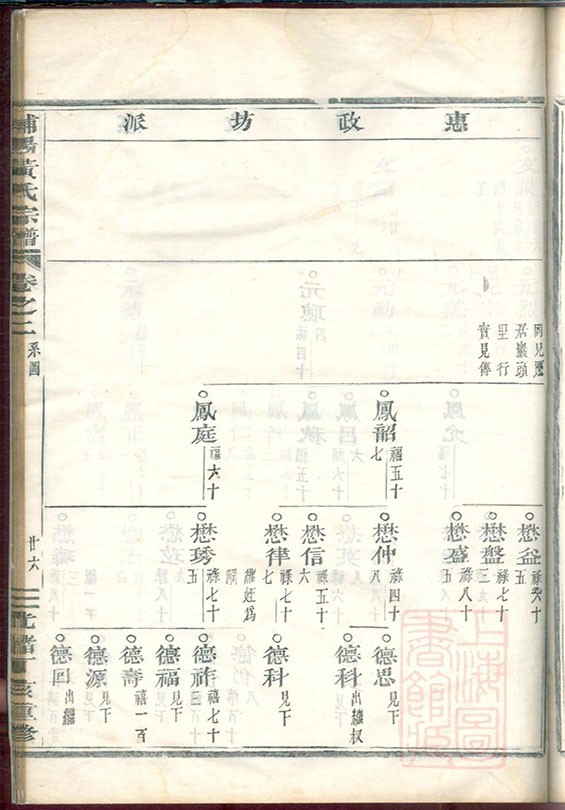 惠政坊派
同兄遷
居巖頭
里行
實見傳
鳳韶
福五十
七
鳳庭
福六十
懋盆
祿六十
五
懋盤
祿七十
懋盛
祿八十
五
懋仲
祿四十
八
懋信
祿五十
六
懋律
祿七十
七
繼姪爲
嗣
懋琇
祿七十
五
德思
見下
德科
出繼叔
德科
見下
德祚
禧七十
德福
見下
德壽
禧一百
德源
見下
德回
出繼
浦陽黃氏宗譜
卷之二
系圖
廿六
重修
上海圖書館藏